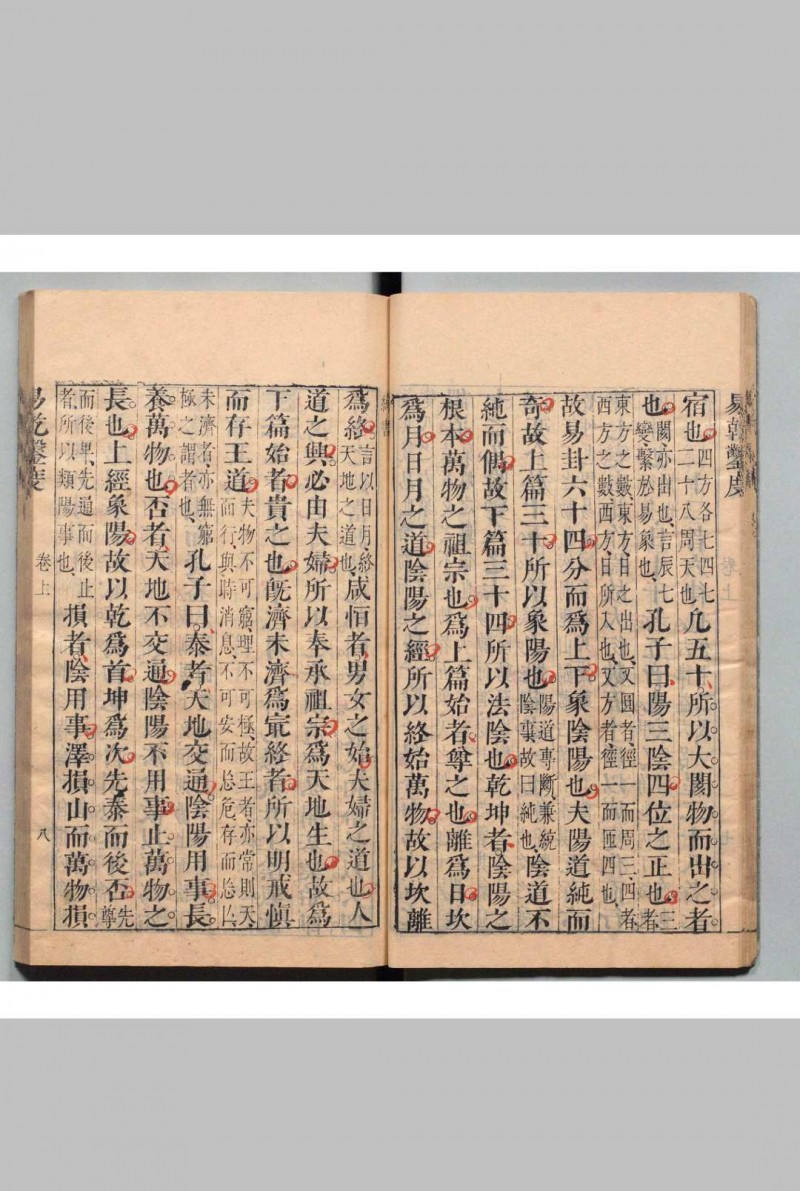 易乾鑿度
宿也四方各七四七
二十八周天也凡五十所以大閡物而出之者
也閡亦出也言辰七
變繫於易象也孔子曰陽三陰四位之正也三
者
東方之數東方日之出也又圓者徑一而周三四者
西方之數西方日所入也又方者徑一而匝四也
故易卦六十四分而爲上下象陰陽也夫陽道純而
奇故上篇三十所以象陽也陽道專斷兼統
陰事故曰純也陰道不
純而偶故下篇三十四所以法陰也乾坤者陰陽之
根本萬物之祖宗也爲上篇始者尊之也離爲日坎
爲月日月之道陰陽之經所以終始萬物故以坎離
爲終言以日月終
天地之道也咸恒者男女之始夫婦之道也人
道之興必由夫婦所以奉承祖宗爲天地生也故爲
下篇始者貴之也旣濟未濟爲㝡終者所以明戒慎
而存王道夫物不可窮理不可極故王者亦常則天
而行與時消息不可安而忘危存而忘亡
未濟者亦無窮
極之謂者也孔子曰泰者天地交通陰陽用事長
養萬物也否者天地不交通陰陽不用事止萬物之
長也上經象陽故以乾爲首坤爲次先泰而後否先
尊
而後卑先通而後止
者所以類陽事也損者陰用事澤損山而萬物損
易乾鑿度
卷上
八